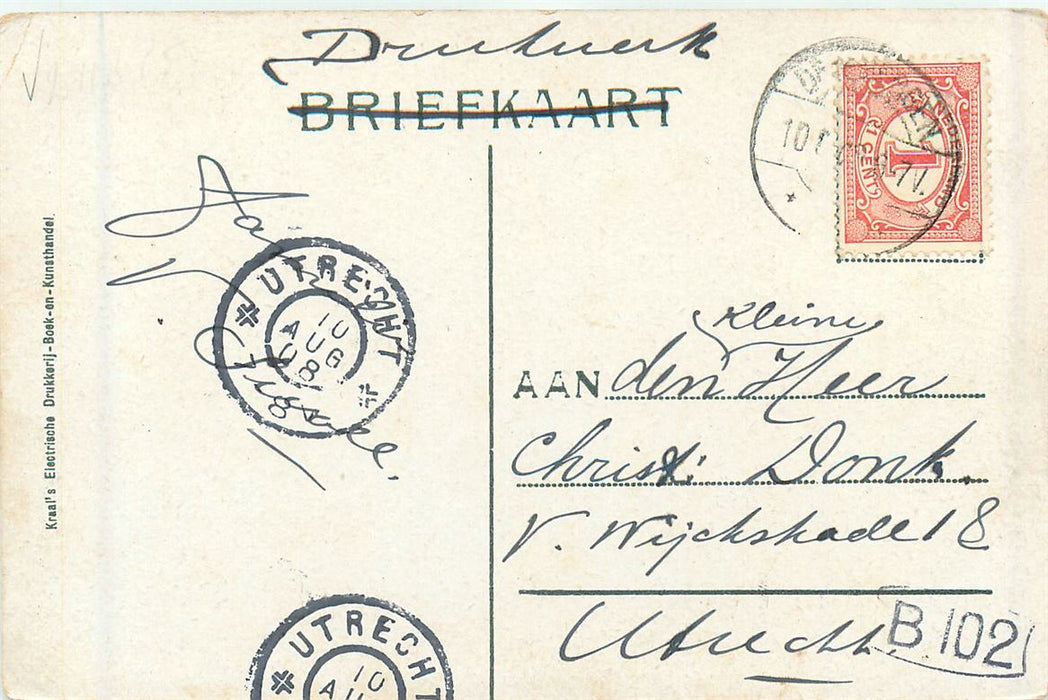 Drukwerk
BRIEFKAART
1 CENT
UTRECHT
10
AUG
08
Kraal's Electrische Drukkerij-Boek-en-Kunsthandel.
kleine
AAN den Heer
Christ: Donk.
V. Wijckskade 18
Utrecht
B 102
UTRECHT
10
AU